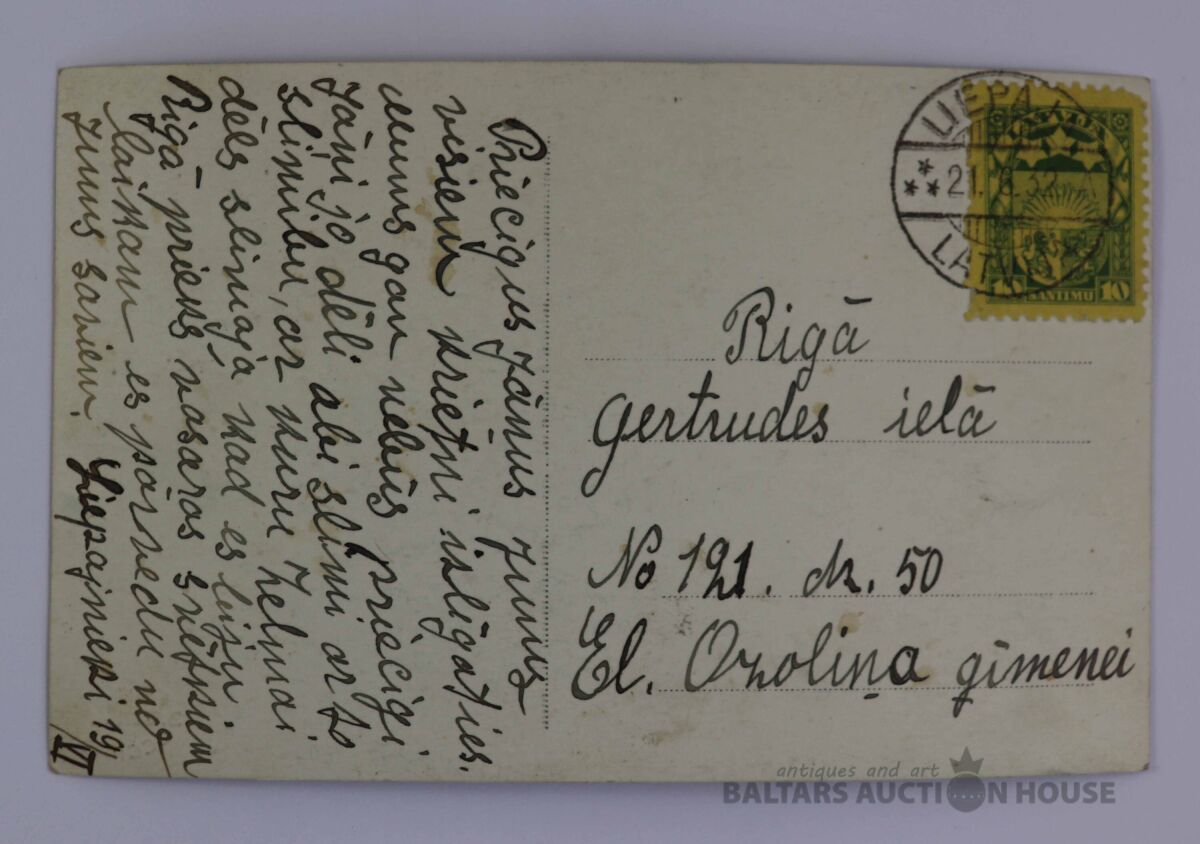 Priecīgus Jāņus Jums
visiem krietni izlīgoties.
Mums gan nebūs priecīgi
Jāņi jo dēli abi slimi ar to
slimību, ar kuru Zelmai
dēls slimoja kad es biju
Rīgā priekš vasaras svētkiem
laikam es pārvedu no
Jums saviem.
Liepajnieki 19/VI
LIEPĀJA
21. 6. 32
LATVIJA
LATVIJA
10 SANTIMU 10
Rīgā
Gertrudes ielā
No 121. dz. 50
El. Ozoliņa ģimenei
antiques and art
BALTARS AUCTION HOUSE